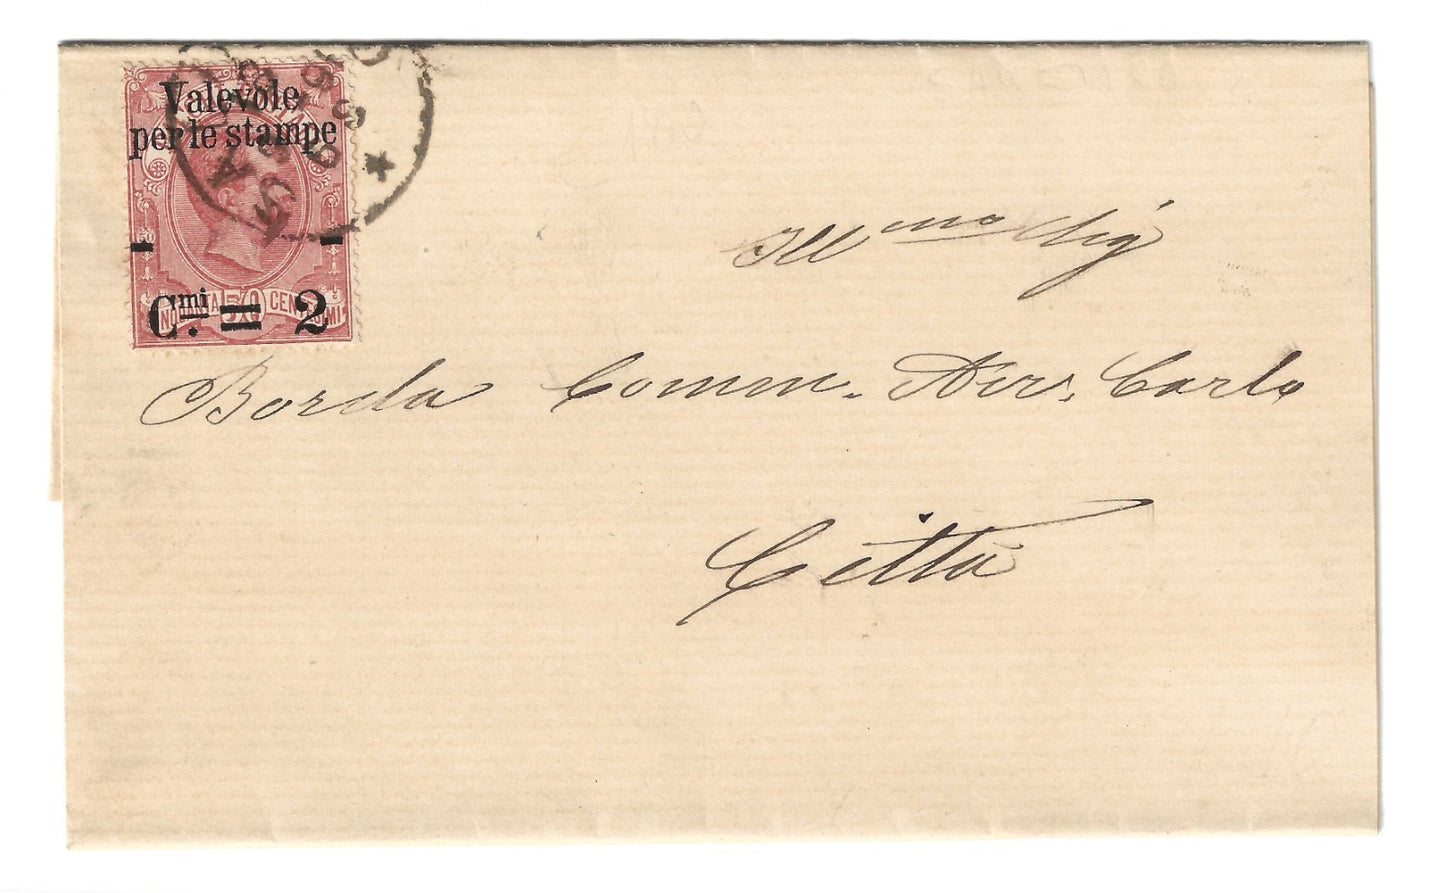 Valevole
per le stampe
50
CENTESIMI
Cmi. = 2
Illmo Sig
Borda Comm. Avv. Carlo
Città